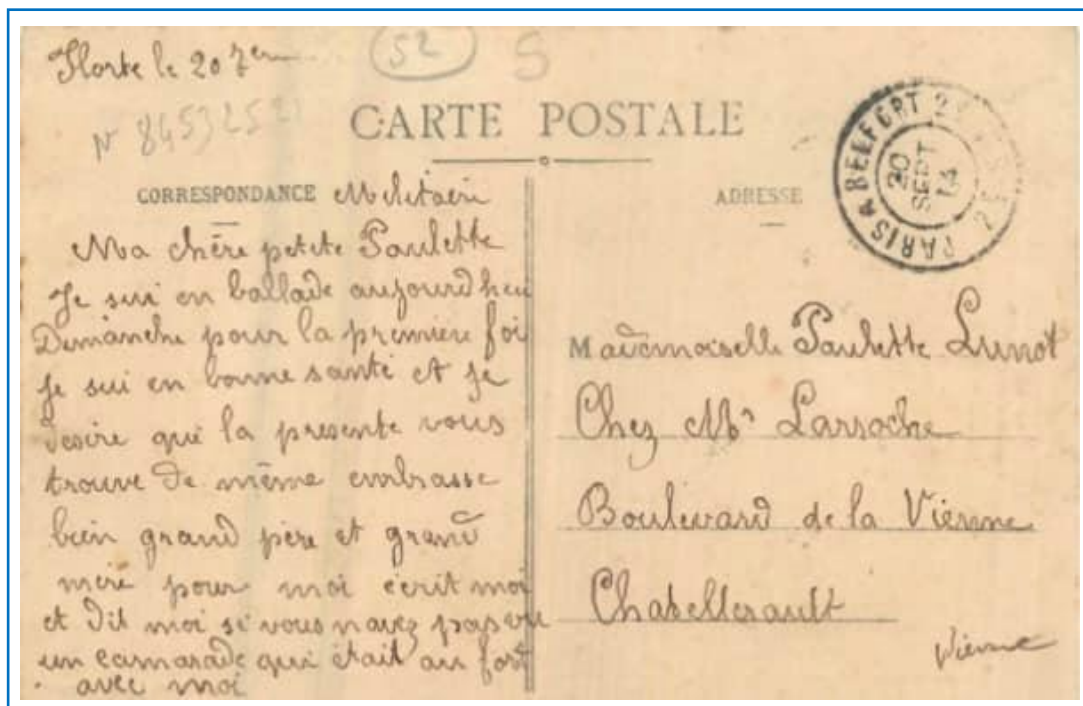 le 20 7bre
52 S
CARTE POSTALE
CORRESPONDANCE Militaire
ADRESSE
PARIS A BELFORT
20
SEPT
14
Ma chère petite Paulette
Je sui en ballade aujourd heu
Dimanche pour la première foi
je sui en bonne santé et je
desire que la presente vous
trouve de même embrasse
bien grand père et grand
mère pour moi écrit moi
et dit moi si vous navez pas vu
un camarade qui était au fort
avec moi
Mademoiselle Paulette Lunot
Chez Mr Larroche
Boulevard de la Vienne
Chatellerault
Vienne